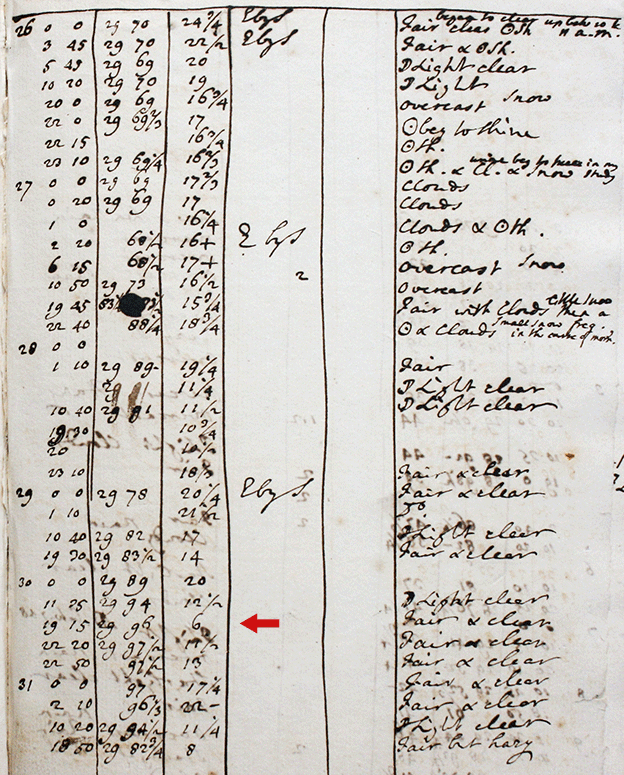 26 0 0 29 70 24 3/4 EbyS Fair clear ʘsh began to clear up
3 45 29 70 22 1/2 EbyS Fair & ʘsh.
5 45 29 69 20 ☽ Light clear
10 20 29 70 19 ☽ Light
20 0 29 69 16 3/4 overcast snow
22 0 29 69 2/3 17 ʘ beg to shine
22 15 16 3/4 ʘsh.
23 10 29 69 1/4 16 2/3 ʘsh. & Cl. & snow
27 0 0 29 69 17 2/3 Clouds
0 20 29 69 17 Clouds
1 0 16 3/4 Clouds & ʘsh.
2 20 68 1/2 16+ E byS ʘsh.
6 15 68 1/2 17+ overcast snow
10 50 29 73 16 1/2 2 overcast
19 45 15 3/4 Fair with Clouds
22 40 88 1/4 18 3/4 ʘ & Clouds small snow
28 0 0
1 10 29 89- 19 1/4 Fair
29 11 1/4 ☽ Light clear
10 40 29 91 11 1/2 ☽ Light clear
19 30 10 3/4
20
23 10 Fair & clear
29 0 0 29 78 20 1/4 EbyS Fair & clear
1 10 Do.
10 40 29 82 17 ☽ Light clear
19 30 29 83 1/2 14 Fair & clear
30 0 0 29 89 20
11 25 29 94 12 1/2 ☽ Light clear
19 15 29 96 6 Fair & clear
22 20 29 97 1/2 Fair & clear
22 50 97 1/2 13 Fair & clear
31 0 0 97 17 1/4 Fair & clear
2 10 96 1/3 22- Fair & clear
10 20 29 94 1/2 11 1/4 ☽ Light clear
18 50 29 82 3/4 8 Fair but hazy